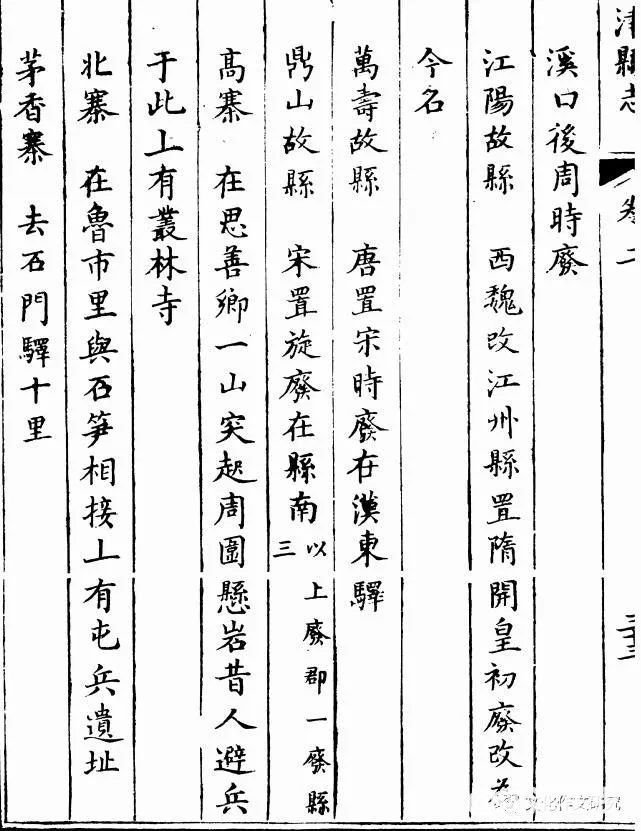 津縣志
卷二
三十三
溪口後周時廢
江陽故縣 西魏改江州縣置隋開皇初廢改為
今名
萬壽故縣 唐置宋時廢在漢東驛
鼎山故縣 宋置旋廢在縣南 以上廢郡一廢縣三
高寨 在思善鄉一山突起周圍懸岩昔人避兵
于此上有叢林寺
北寨 在魯市里與石笋相接上有屯兵遺址
茅香寨 去石門驛十里